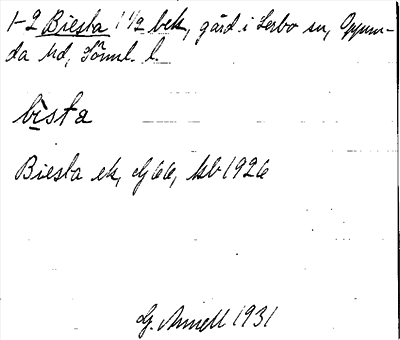 1-2 Biesta 1 1/2 bek, gård i Lerbo sn, Oppun-
da hd, Söml. l.
bista
Biesta ek, Gj 66, kb 1926
G. Annell 1931